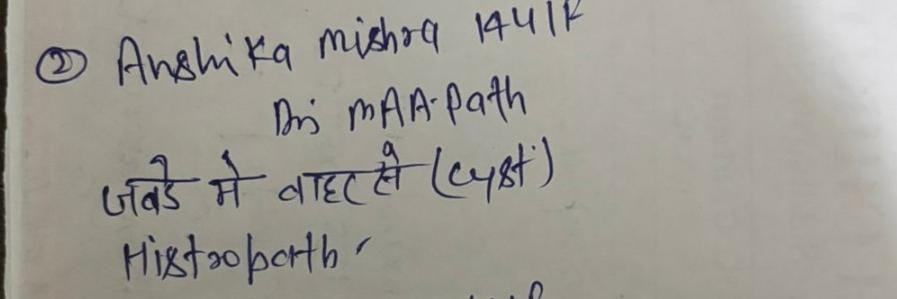 ② Anshika mishra 144 1F
Dr's MAA-Path
जबडे मे बाहर से (cyst)
Histropath